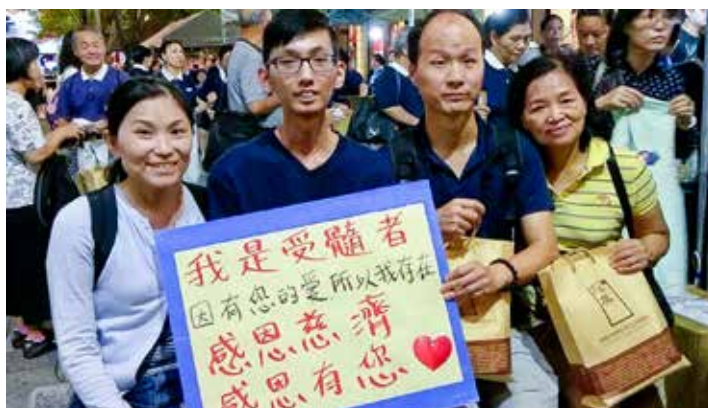 我是受髓者
因有您的愛所以我存在
感恩慈濟
感恩有您